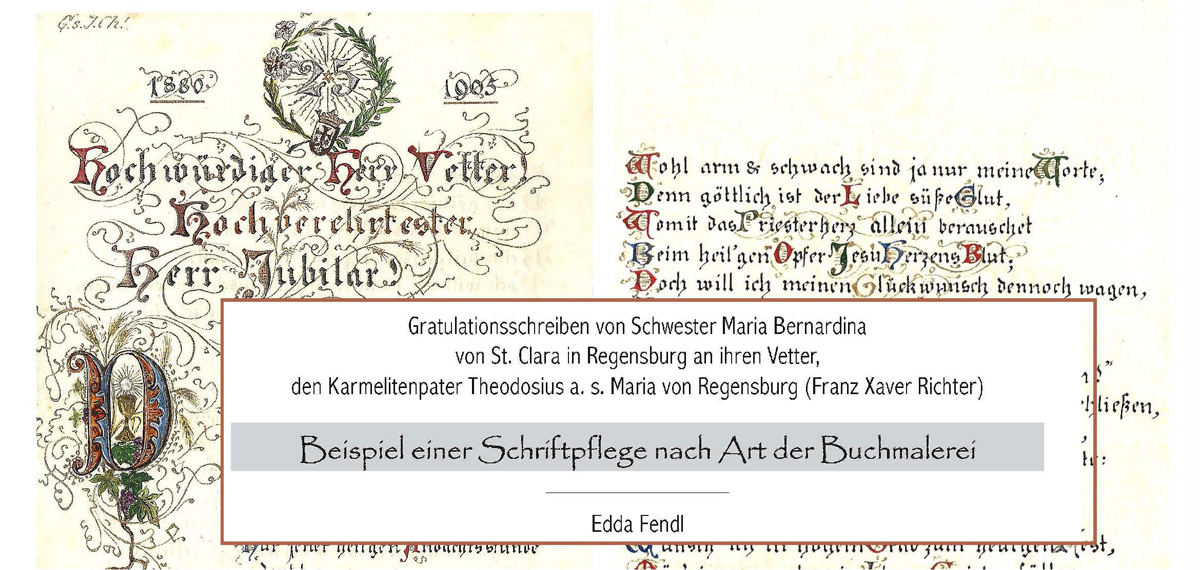 G. s. J. Ch!
25
1880
1905
Hochwürdiger Herr Vetter!
Hochverehrtester
Herr Jubilar!
Wohl arm & schwach sind ja nur meine Worte,
Denn göttlich ist der Liebe süße Glut,
Womit das Priesterherz allein berauschet
Beim heil'gen Opfer Jesu Herzens Blut;
Doch will ich meinen Glückwunsch dennoch wagen,
Gratulationsschreiben von Schwester Maria Bernardina
von St. Clara in Regensburg an ihren Vetter,
den Karmelitenpater Theodosius a. s. Maria von Regensburg (Franz Xaver Richter)
Beispiel einer Schriftpflege nach Art der Buchmalerei
Edda Fendl